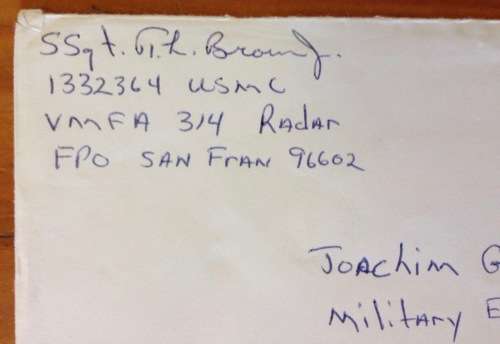 SSgt. G.L. Brown Jr.
1332364 USMC
VMFA 314 Radar
FPO SAN FRAN 96602
JOACHIM G
Military E